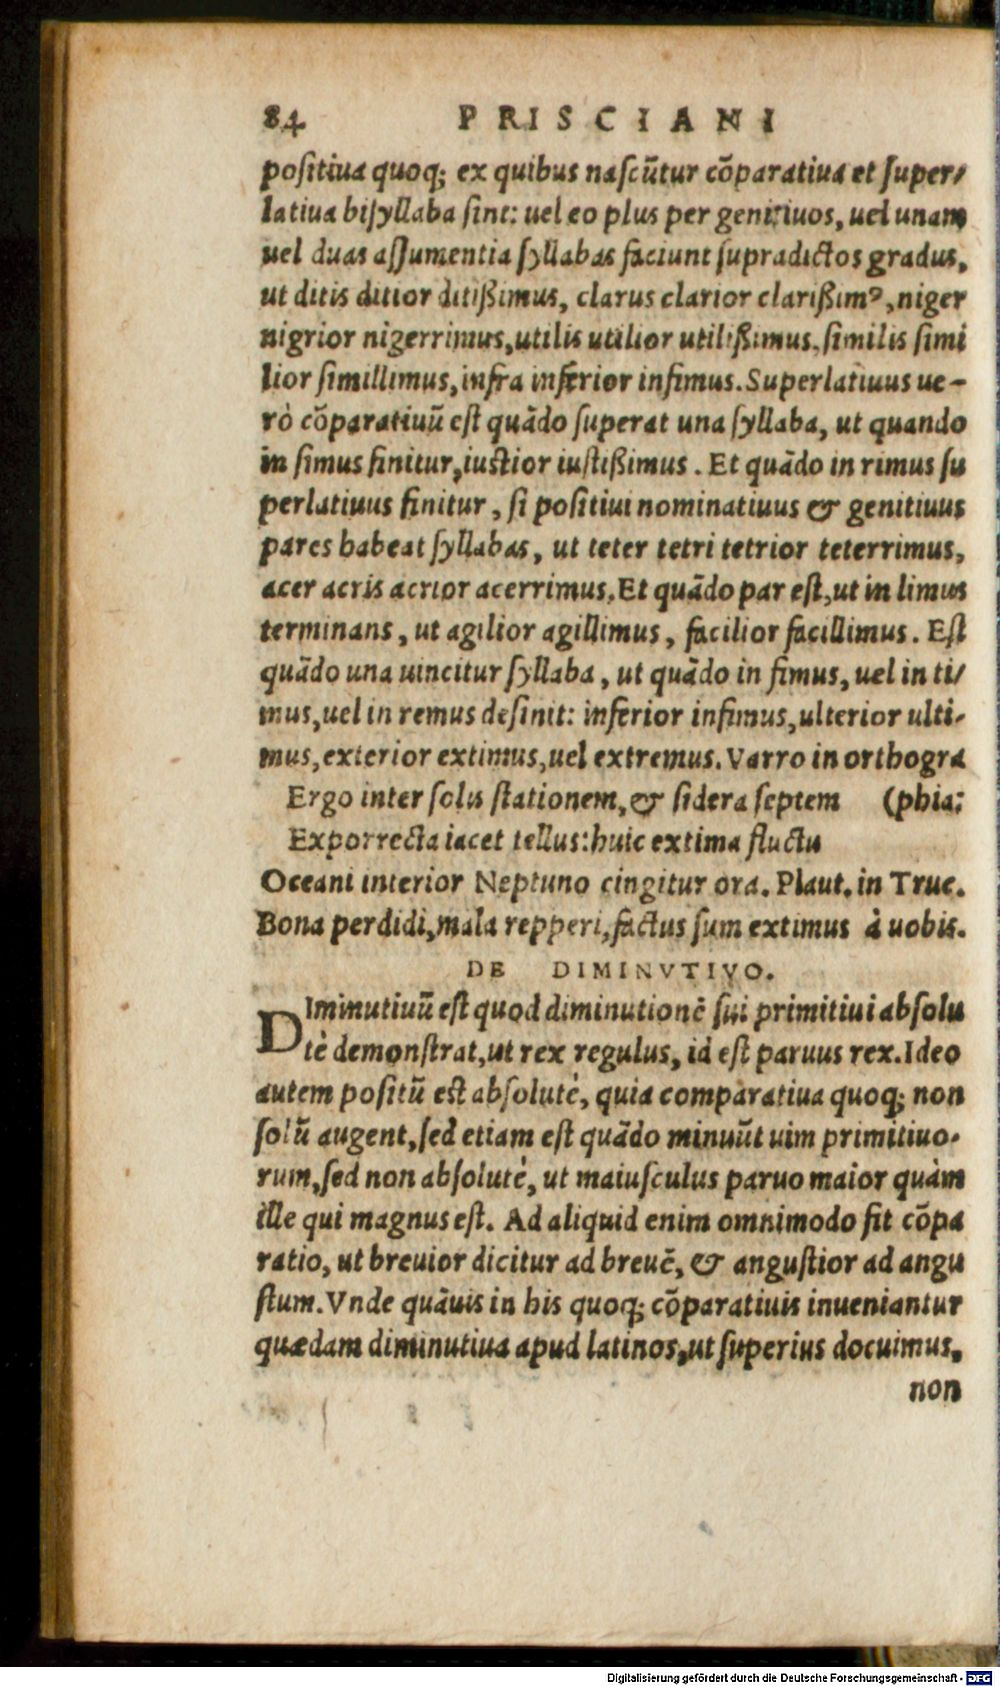 84 PRISCIANI
poſitiua quoq; ex quibus naſcūtur cōparatiua et ſuper/
latiua biſyllaba ſint: uel eo plus per genitiuos, uel unam
uel duas aſſumentia ſyllabas faciunt ſupradictos gradus,
ut ditis ditior ditißimus, clarus clarior clarißimꝰ, niger
nigrior nigerrimus, utilis utilior utilißimus, ſimilis ſimi
lior ſimillimus, infra inferior infimus. Superlatiuus ue-
rò cōparatiuū eſt quādo ſuperat una ſyllaba, ut quando
in ſimus finitur, iuſtior iuſtißimus. Et quādo in rimus ſu
perlatiuus finitur, ſi poſitiui nominatiuus & genitiuus
pares habeat ſyllabas, ut teter tetri tetrior teterrimus,
acer acris acrior acerrimus. Et quādo par eſt, ut in limus
terminans, ut agilior agillimus, facilior facillimus. Eſt
quādo una uincitur ſyllaba, ut quādo in fimus, uel in ti/
mus, uel in remus deſinit: inferior infimus, ulterior ulti-
mus, exterior extimus, uel extremus. Varro in orthogra
Ergo inter ſolis ſtationem, & ſidera ſeptem (phia:
Exporrecta iacet tellus: huic extima fluctu
Oceani interior Neptuno cingitur ora. Plaut. in Truc.
Bona perdidi, mala repperi, factus ſum extimus à uobis.
DE DIMINVTIVO.
DIminutiuū eſt quod diminutionē ſui primitiui abſolu
tè demonſtrat, ut rex regulus, id eſt paruus rex. Ideo
autem poſitū eſt abſolutè, quia comparatiua quoq; non
ſolū augent, ſed etiam eſt quādo minuūt uim primitiuo-
rum, ſed non abſolutè, ut maiuſculus paruo maior quàm
ille qui magnus eſt. Ad aliquid enim omnimodo fit cōpa
ratio, ut breuior dicitur ad breuē, & anguſtior ad angu
ſtum. Vnde quāuis in his quoq; cōparatiuis inueniantur
quædam diminutiua apud latinos, ut ſuperius docuimus,
non
Digitalisierung gefördert durch die Deutsche Forschungsgemeinschaft - DFG